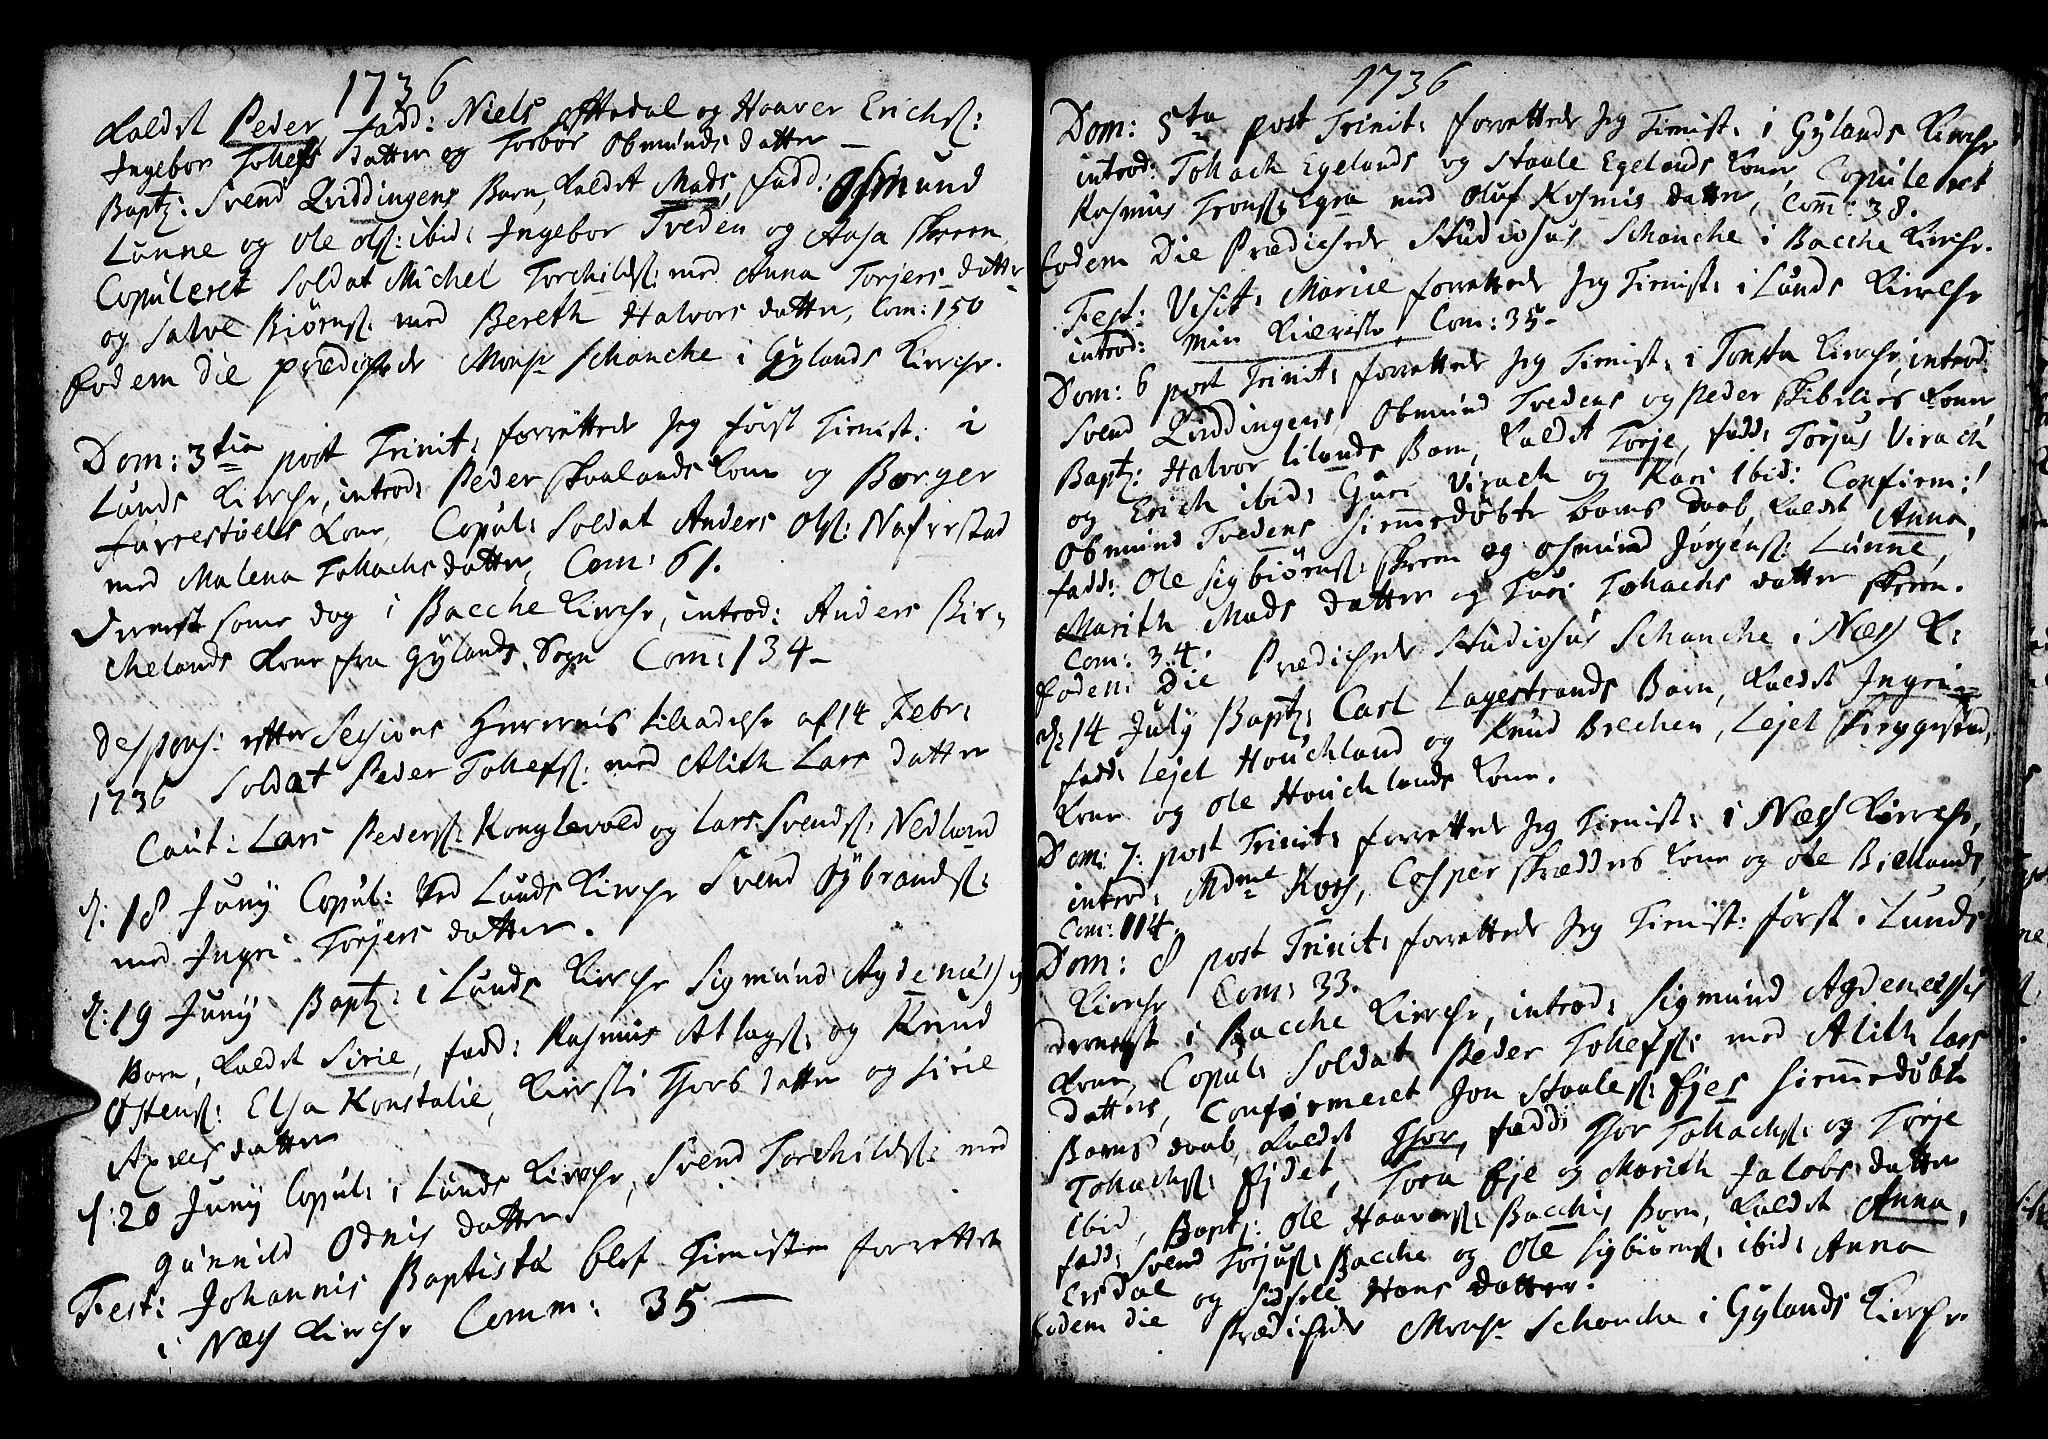 1736
kaldet Peder, fadd: Niels Ottedal og Haaver Erichs:
Ingebor Tollefs datter og Torbor Obmunds datter —
Bapt: Svend Quiddingens Barn, kaldet Mads, fadd: Osmund
Lunne og Ole Ols: ibid: Ingebor Treden og Aasa Skreen
Copuleret Soldat Michel Torchilds: med Anna Torjers datter
og Salve Biörns: med Bereth Halvors datter, Com: 150
Eodem die prædichede Monsr Schanche i Gylands Kirche.
Dom: 3tia post Trinit: forrettede Jeg först Tienist: i
Lunds Kirche, introd: Peder Skaalands Kone og Börger
Kone, Copul: Soldat Anders Ols: Nafvestad
med Malena Tollachs datter, Com: 61.
Dernest samme dag i Bacche Kirche, introd: Anders Bir-
chelands Kone fra Gylands Sogn Com: 134 —
Despons: efter Sessions Herrernis tilladelse af 14 Febr:
1736 Soldat Peder Tollefs: med Alith Lars datter
Caut: Lars Peders: Konglevold og Lars Svends: Nedland
d: 18 Junij Copul: ved Lunds Kirche Svend Sÿbrands:
med Ingri Torjers datter.
d: 19 Junij Bapt: i Lunds Kirche Sigmund Agdenes
Barn, kaldet Sirie, fadd: Rasmus Atlags: og Knud
Östens: Elsa Konstalie, Kirsti Thors datter og Sirie
Axels datter
d: 20 Junij Copul: i Lunds Kirche, Svend Torchilds: med
Gunnild Odnis datter
Fest: Johannis Baptistæ blef Tienisten forrettet
i Næss Kirche Comm: 35 —
1736
Dom: 5ta post Trinit: forrettede Jeg Tienist: i Gylands Kirche
introd: Tollach Egelands og Staale Egelands Kone, Copuleret
Rasmus Trons: Egra med Oluf Rasmis datter, Com: 38.
Eodem Die Prædichede Studiosus Schanche i Bacche Kirche.
Fest: Visit: Mariæ forrettede Jeg Tienist: i Lunds Kirche
introd: min Kiæriste, Com: 35 —
Dom: 6 post Trinit: forrettede Jeg Tienist: i Tonsta Kirche, introd:
Svend Quiddingens, Obmund Tredens og Peder Skibeliös Kone
Bapt: Halvor Lilands Barn, kaldet Torje, fadd: Torjus Virach
og Erich ibid: Guri Virach og Kari ibid: Confirm:
Obmund Tredens hiemmedöbte Barns daab, kaldet Anna,
fadd: Ole Sigbiörns: Skreen og Osmund Jörgens: Lunne,
Marith Mads datter og Turi Tollachs datter Skreen.
Com: 34.
Eodem Die Prædichede Studiosus Schanche i Næss K:
d: 14 July Bapt: Carl Lagestrands Barn, kaldet Ingri
fadd: Lejel Houchland og Knud Brechen, Lejel
Kone og Ole Houchlands Kone.
Dom: 7: post Trinit: forrettede Jeg Tienist: i Næss Kirche,
introd: Mdme Koss, Casper Skredders Kone og Ole Biellands,
Com: 114.
Dom: 8 post Trinit: forrettede Jeg Tienist: först i Lunds
Kirche Com: 33.
dernest i Bacche Kirche, introd: Sigmund Agdenessis
Kone, Copul: Soldat Peder Tollefs: med Alith Lars
datter, Confirmeret Jon Staales: Ejes hiemmedöbt
Barns daab, kaldet Thor, fadd: Thor Tollachs: og Torje
Tollachs: Ejdet, Tora Eje og Marith Jacobs datter
ibid, Bapt: Ole Haavers: Bacchis Barn, kaldet Anna,
fadd: Svend Torjus: Bacche og Ole Sigbiörns: ibid: Anna
Ersdal og Sidsele Hans datter.
Eodem die Prædichede Monsr Schanche i Gylands Kirche.